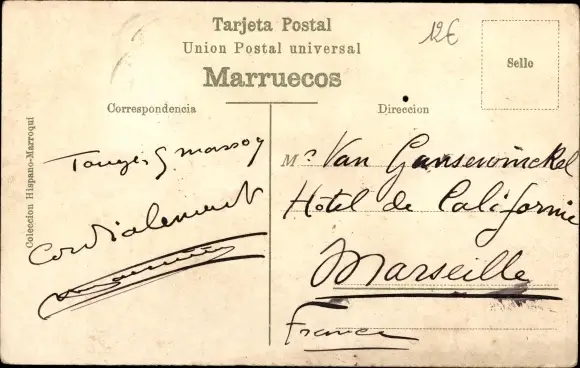 Tarjeta Postal
Union Postal universal
Marruecos
12€
Sello
Correspondencia
Direccion
Coleccion Hispano-Marroqui
Cordialement
Mr Van
Hotel de Californie
Marseille
France